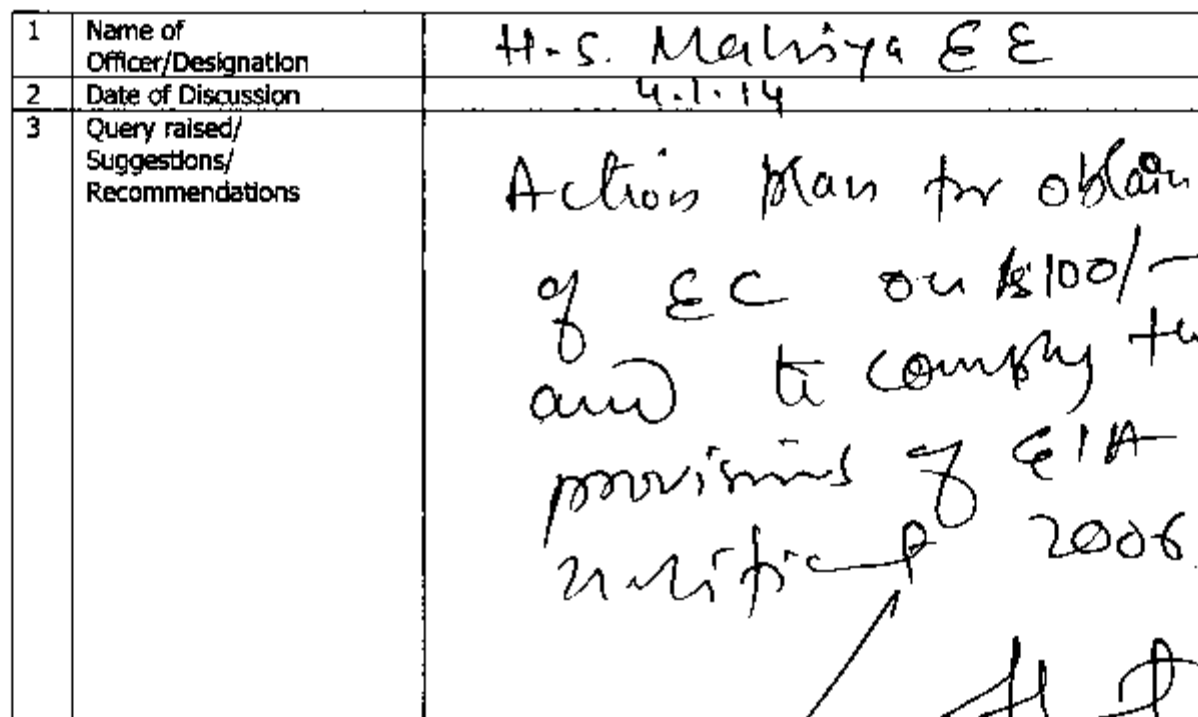 1 Name of Officer/Designation H.S. Mahiya EE
2 Date of Discussion 4.1.14
3 Query raised/
Suggestions/
Recommendations
Action plan for obtain
of EC on Rs100/-
and to comply
provisions of EIA
2006